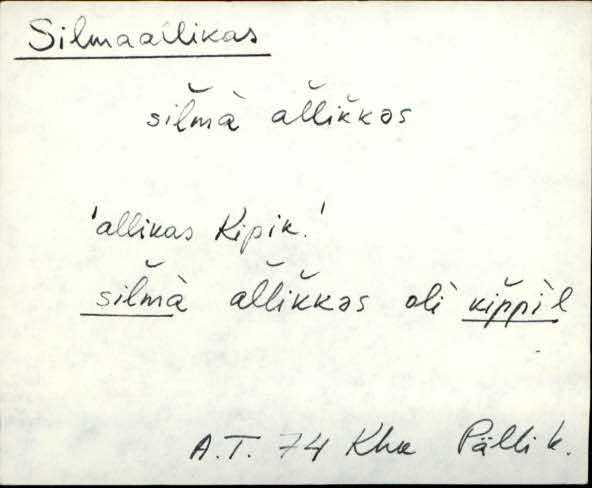 Silmaallikas
sil̆mà al̆lik̆kəs
'allikas Kipik.'
sil̆mà al̆lik̆kəs oli kip̆pìl
A.T. 74 Khk Pälli k.